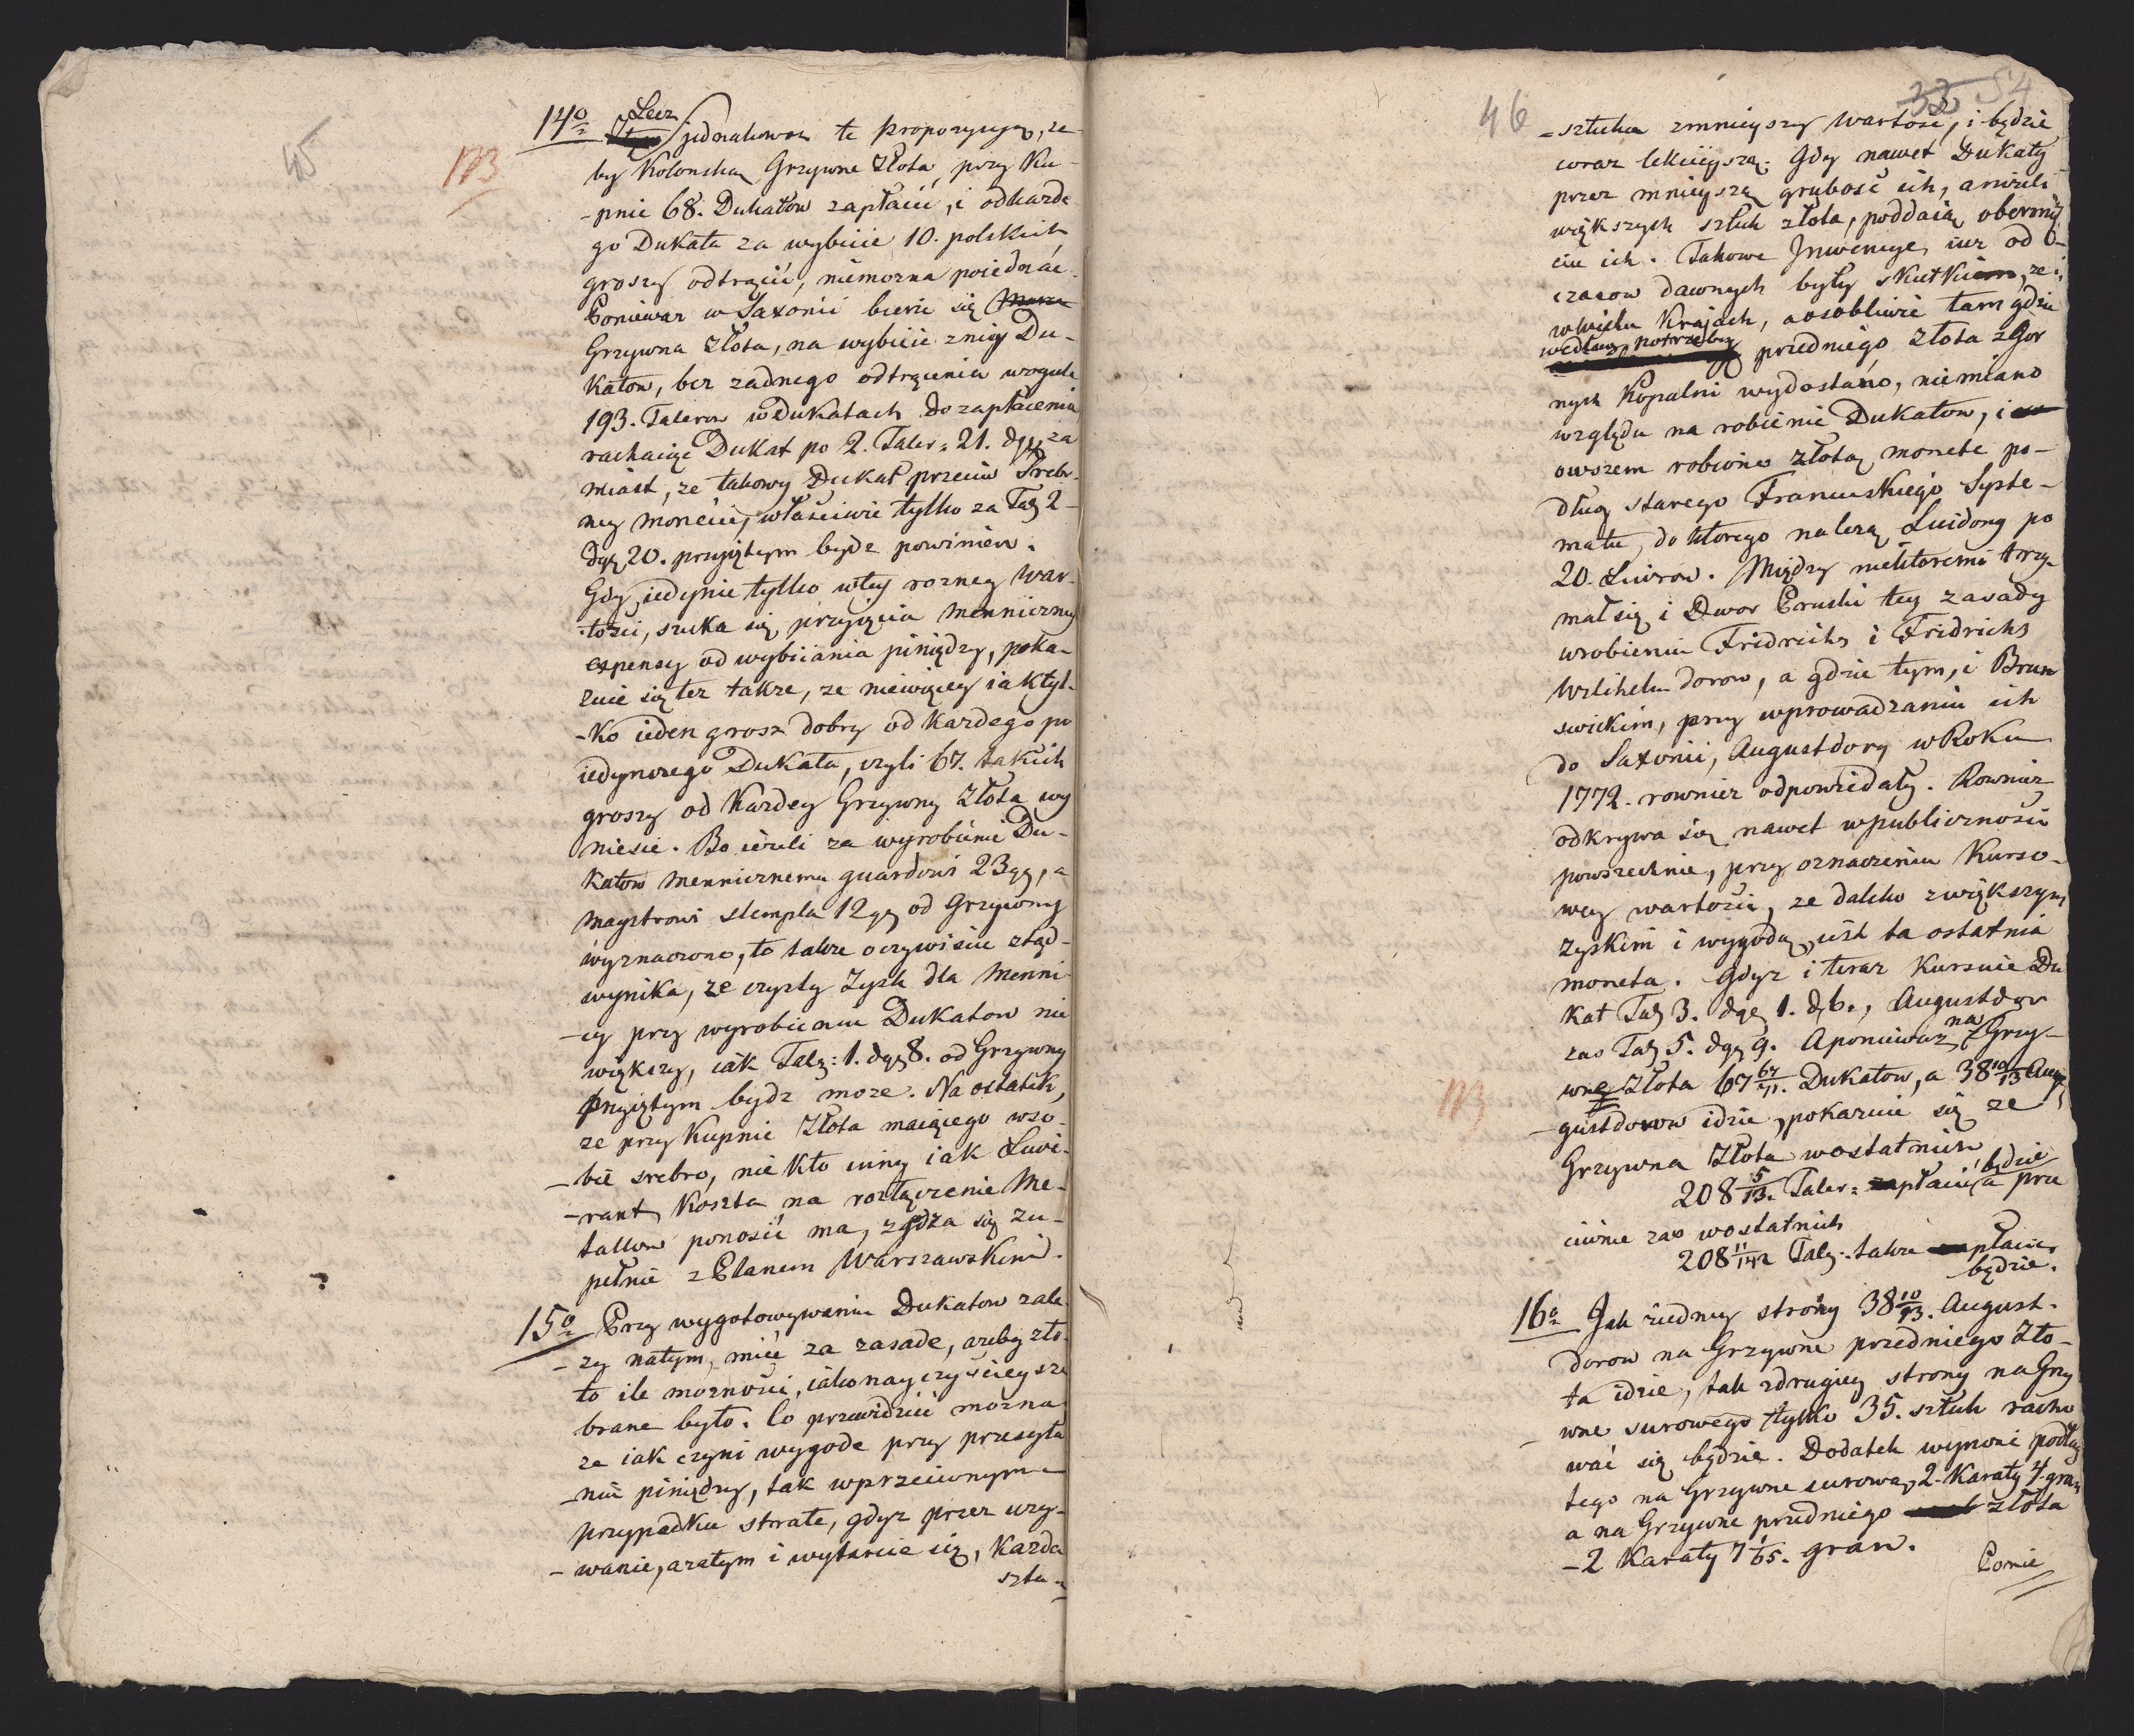 45
NB
14o Lecz jednakowoz te propozycyą, ze
by Kolonską Grzywne Złota, przy Ku-
-pnie 68. Dukatow zapłacić, i od kazde
go Dukata za wybicie 10. polskich
groszy odtrącić, niemozna poiednać.
Poniewaz w Saxonii bierze się
Grzywna Złota, na wybicie z niey Du-
katow, bez zadnego odtrącenia wogule
193. Talerow w Dukatach do zapłacenia
rachuiąc Dukat po 2. Taler: 21. dgg, za
miast, ze takowy Dukat przeciw Srebr-
ney monecie, właściwie tylko za Tal 2-
dgg 20. przyiętym bydz powinien.
Gdy iedynie tylko w tey rozney War-
-tości, szuka się przyięcia menniczney
expensy od wybiiania piniędzy, poka-
zuie się tez takze, ze niewięcey iak tyl-
-ko ieden grosz dobry od kazdego po
iedynczego Dukata, czyli 67. takich
groszy od Kazdey Grzywny Złota wy
niesie. Bo iezeli za wyrobienie Du-
katow mennicznemu guardowi 23 gg, a
mayztrowi stempla 12 gg od Grzywny
wyznaczono, to takze oczywiscie ztąd-
wynika, ze czysty Zysk dla Menni-
-cy przy wyrobieniu Dukatow nie
większy, iak Tal: 1. dgg 8. od Grzywny
przyiętym bydz moze. Na ostatek,
ze przy Kupnie Złota maiącego w so-
-bie srebro, nie kto inny iak Liwe-
-rant Koszta na rozłączenie Me-
tallow ponosić ma, zgadza się zu-
pełnie z Planem Warszawskim.
15o Przy wygotowywaniu Dukatow zale
-zy na tym, mieć za zasade, azeby zło-
to ile moznosci, iako nayczyścieysze
brane było. Co przewidzieć mozna
ze iak czyni wygode przy przesyła
-niu piniędzy, tak w przeciwnym
przypadku strate, gdyz przez uzy-
-wanie, a zatym i wytarcie się, kazda
sztu-
46
33 54
-sztuka zmnieyszy wartość, i będzie
coraz lekcieyszą. Gdy nawet Dukaty
przez mnieyszą grubość ich, anizeli
większych sztuk złota, poddaią oberzni
ciu ich. Takowe Inwencye iuz od
czasow dawnych były skutkiem, ze i
w wielu Krajach, a osobliwie tam gdzie
według potrzeby przedniego Złota z Gor
nych Kopalni wydostano, nie miano
względu na robienie Dukatow, i
owszem robiono złotą monete po-
dług starego Francuskiego Syste-
matu, do ktorego nalezą Luidory po
20. Liwrow. Między niektoremi trzy-
mał się i Dwor Pruski tey zasady
w robieniu Fridrichs i Fridrichs
Wilhelm dorow, a gdzie tym, i Brun
swickim, przy wprowadzaniu ich
do Saxonii, Augustdory w Roku
1772. rowniez odpowiedały. Rowniez
odkrywa się nawet w publicznosci
powszechnie, przy oznaczeniu Kurso-
wey wartości, ze daleko z większym
zyskiem i wygodą iest ta ostatnia
moneta. Gdyz i teraz Kursuie Du
kat Tal 3. dgg 1. d 6., Augustdor
zas Tal 5. dgg 9. A poniewaz na Grzy-
wne Złota 67 67/71. Dukatow, a 38 10/13 Aug-
-gustdorow idzie, pokazuie się ze
NB
Grzywna Złota w ostatnich
208 5/13. Taler: płacić będzie a prze
ciwnie zas w ostatnich
208 11/142 Tal: takze płacić
będzie.
16o Jak z iedney strony 38 10/13. August-
dorow na Grzywne przedniego Zło-
ta idzie, tak z drugiey strony na Grzy
-wne surowego tylko 35. sztuk racho
wać się będzie. Dodatek wynosi podług
tego na Grzywne surową 2. Karaty 4. gran
a na Grzywne przedniego złota
-2 Karaty 7 1/65. gran.
Ponie